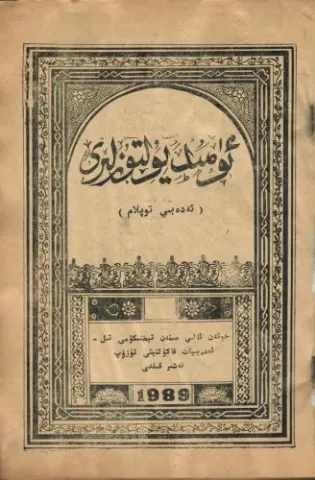 ئۈمىد يۇلتۇزلىرى
( ئەدەبىي توپلام )
خوتەن ئالىي سىفەن تېخنىكومى تىل -
ئەدەبىيات فاكۇلتېتى تۈزۈپ
نەشر قىلدى
1989